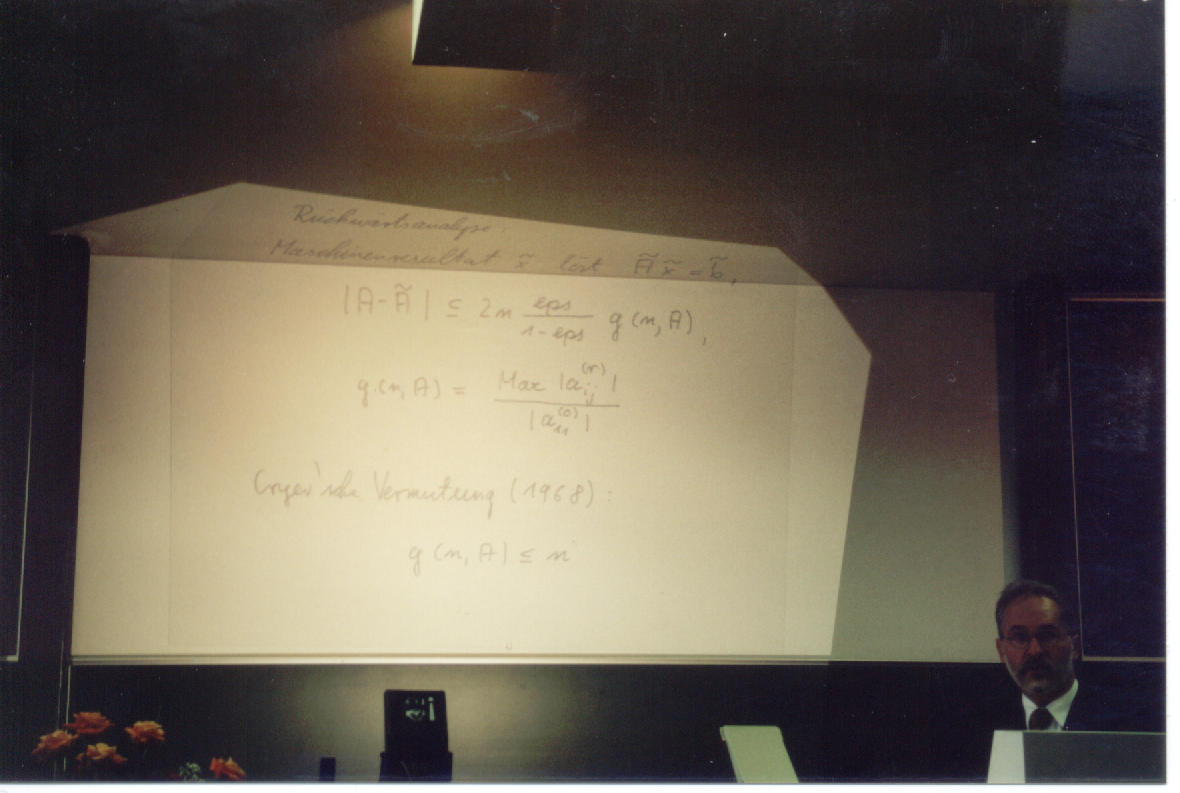 Rückwärtsanalyse:
Maschinenresultat x̃ löst Ã x̃ = b̃,
|A-Ã| ≤ 2n eps/(1-eps) g(n,A),
g(n,A) = Max |a_ij^(r)| / |a_11^(0)|
Cryer'sche Vermutung (1968):
g(n,A) ≤ n